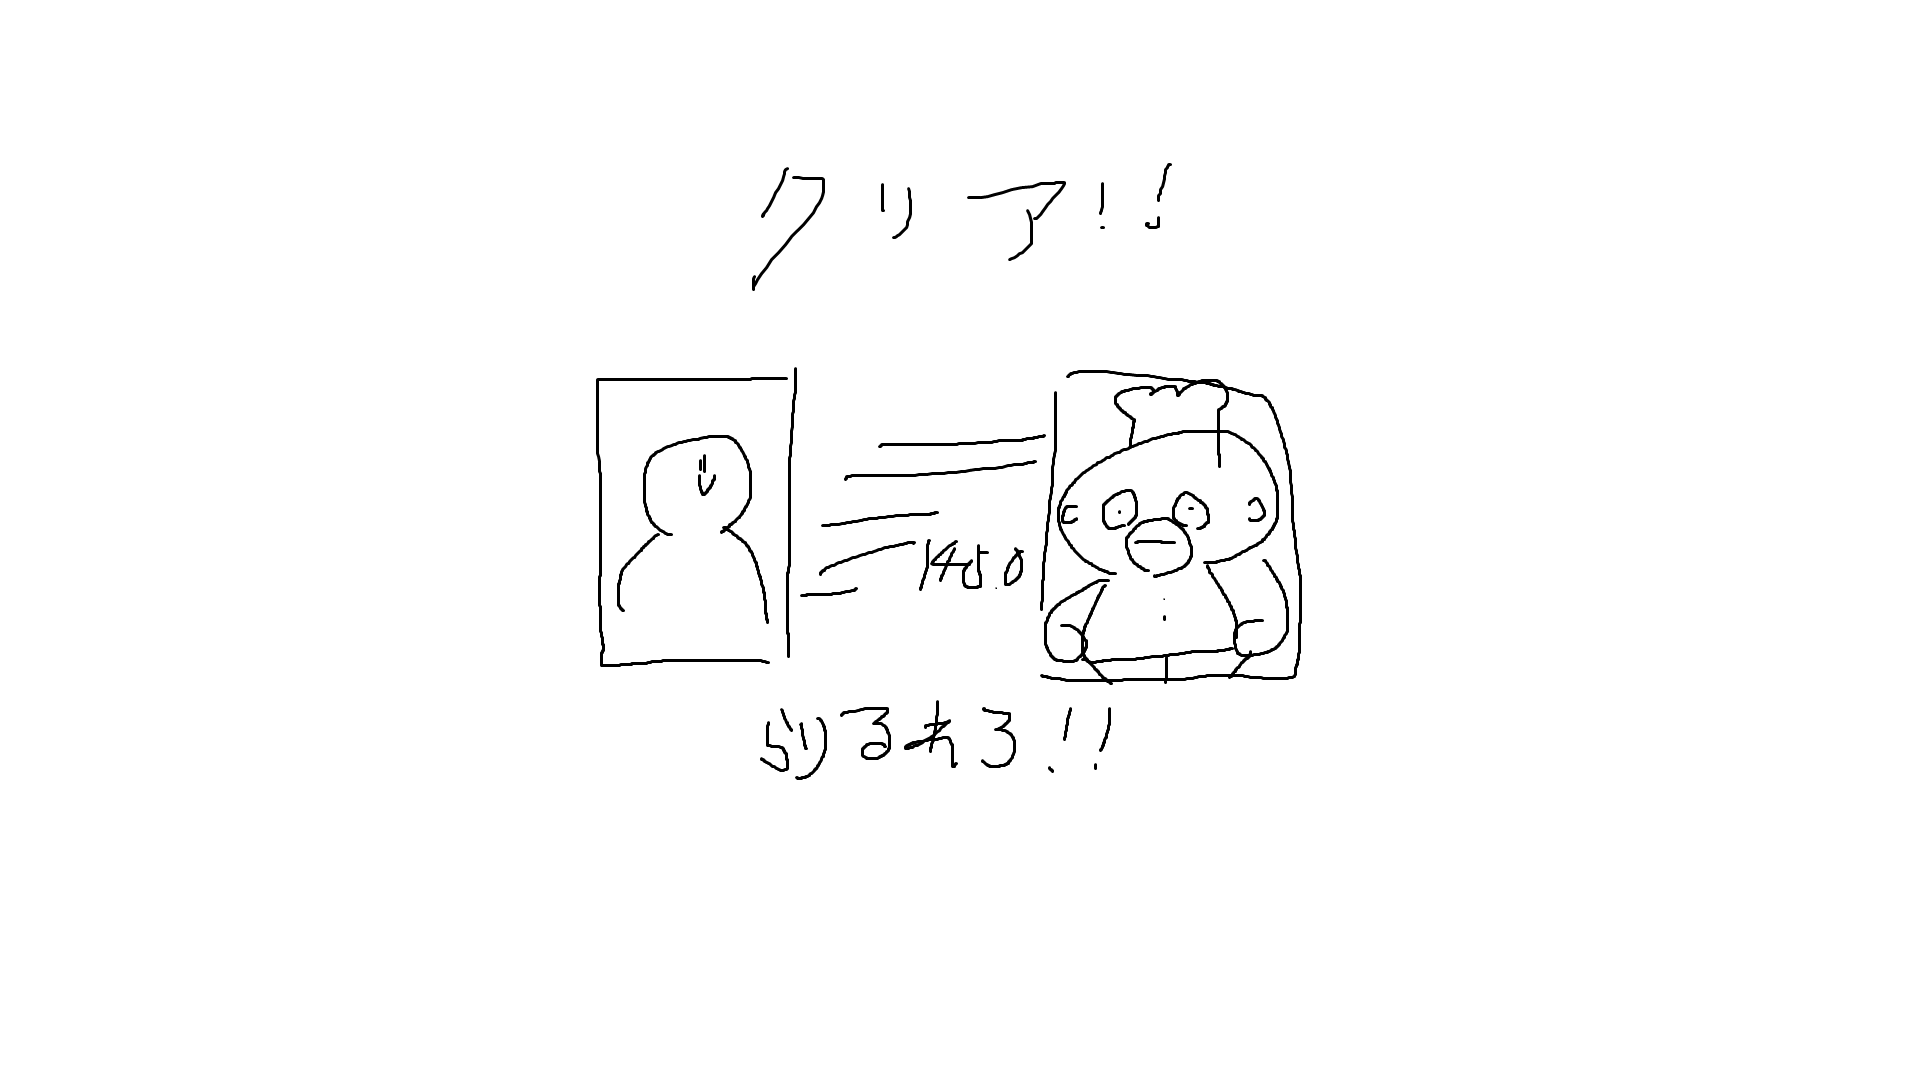 クリア!!
1450
らりるれろ!!